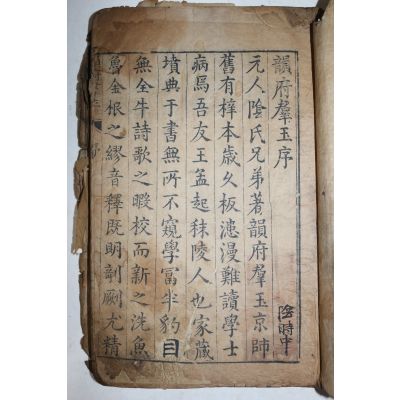 韻府羣玉序
元人陰氏兄弟著韻府羣玉京師
舊有梓本歲久板漶漫難讀學士
病焉吾友王孟起秣陵人也家藏
墳典于書無所不窺學富半豹目
無全牛詩歌之暇校而新之洗魚
魯金根之繆音釋既明剞劂尤精
陰時中